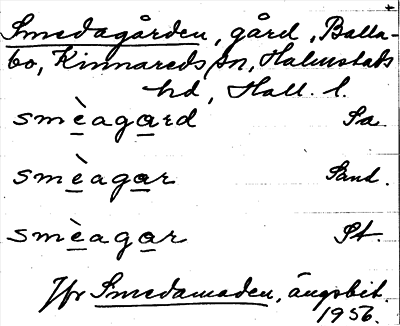 Smedagården, gård, Balla-
bo, Kinnareds sn, Halmstads
hd, Hall. l.
smèagard Sa
smèagar Sand.
smèagar St.
Jfr Smedamaden, ängsbit.
1956.